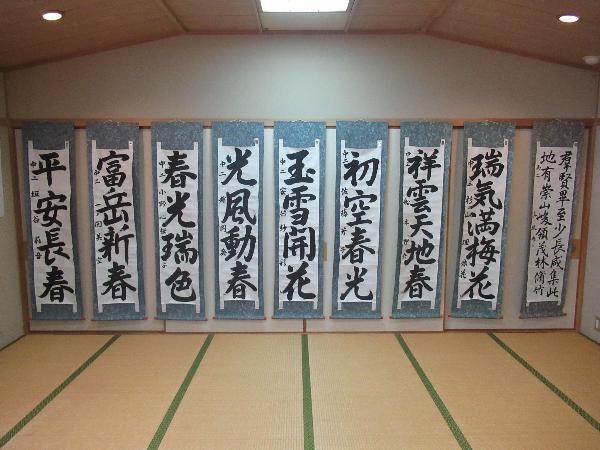 群賢畢至少長咸集此
地有崇山峻領茂林脩竹
瑞気満梅花
祥雲天地春
初空春光
玉雪開花
光風動春
春光瑞色
富岳新春
平安長春